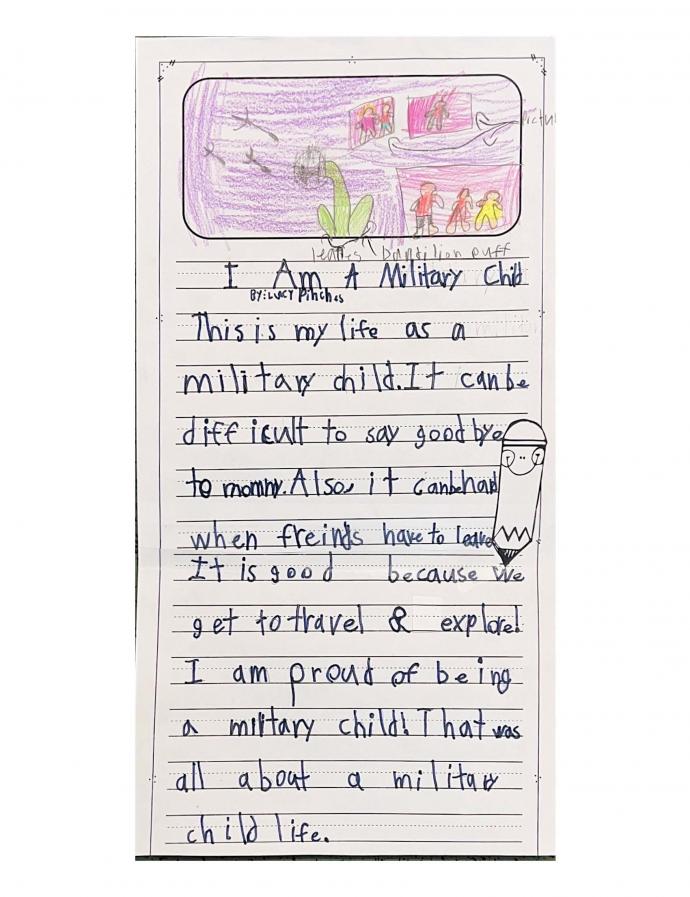 leaves Dandilion puff
I Am A Military Child
BY: LUCY Pinches
This is my life as a
military child. It can be
difficult to say goodbye
to mommy. Also, it can be hard
when freinds have to leave
It is good because we
get to travel & explore!
I am proud of being
a military child! That was
all about a military
child life.